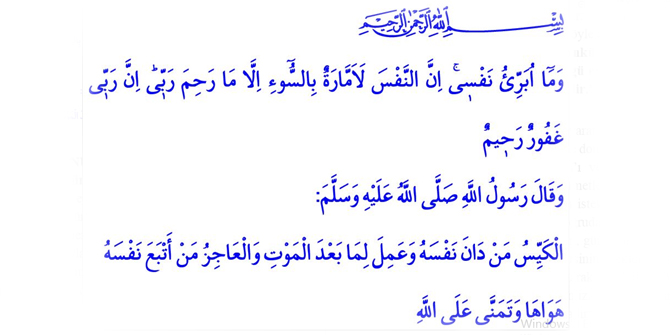 بِسْــــــمِ اللّٰهِ الرَّحْمٰنِ الرَّحِيمِ
وَمَٓا اُبَرِّئُ نَفْسٖيۚ اِنَّ النَّفْسَ لَاَمَّارَةٌ بِالسُّٓوءِ اِلَّا مَا رَحِمَ رَبّٖيؕ اِنَّ رَبّٖي
غَفُورٌ رَحٖيمٌ
وَقَالَ رَسُولُ اللَّهِ صَلَّى اللَّهُ عَلَيْهِ وَسَلَّمَ:
الْكَيِّسُ مَنْ دَانَ نَفْسَهُ وَعَمِلَ لِمَا بَعْدَ الْمَوْتِ وَالْعَاجِزُ مَنْ أَتْبَعَ نَفْسَهُ
هَوَاهَا وَتَمَنَّى عَلَى اللَّهِ
Windows